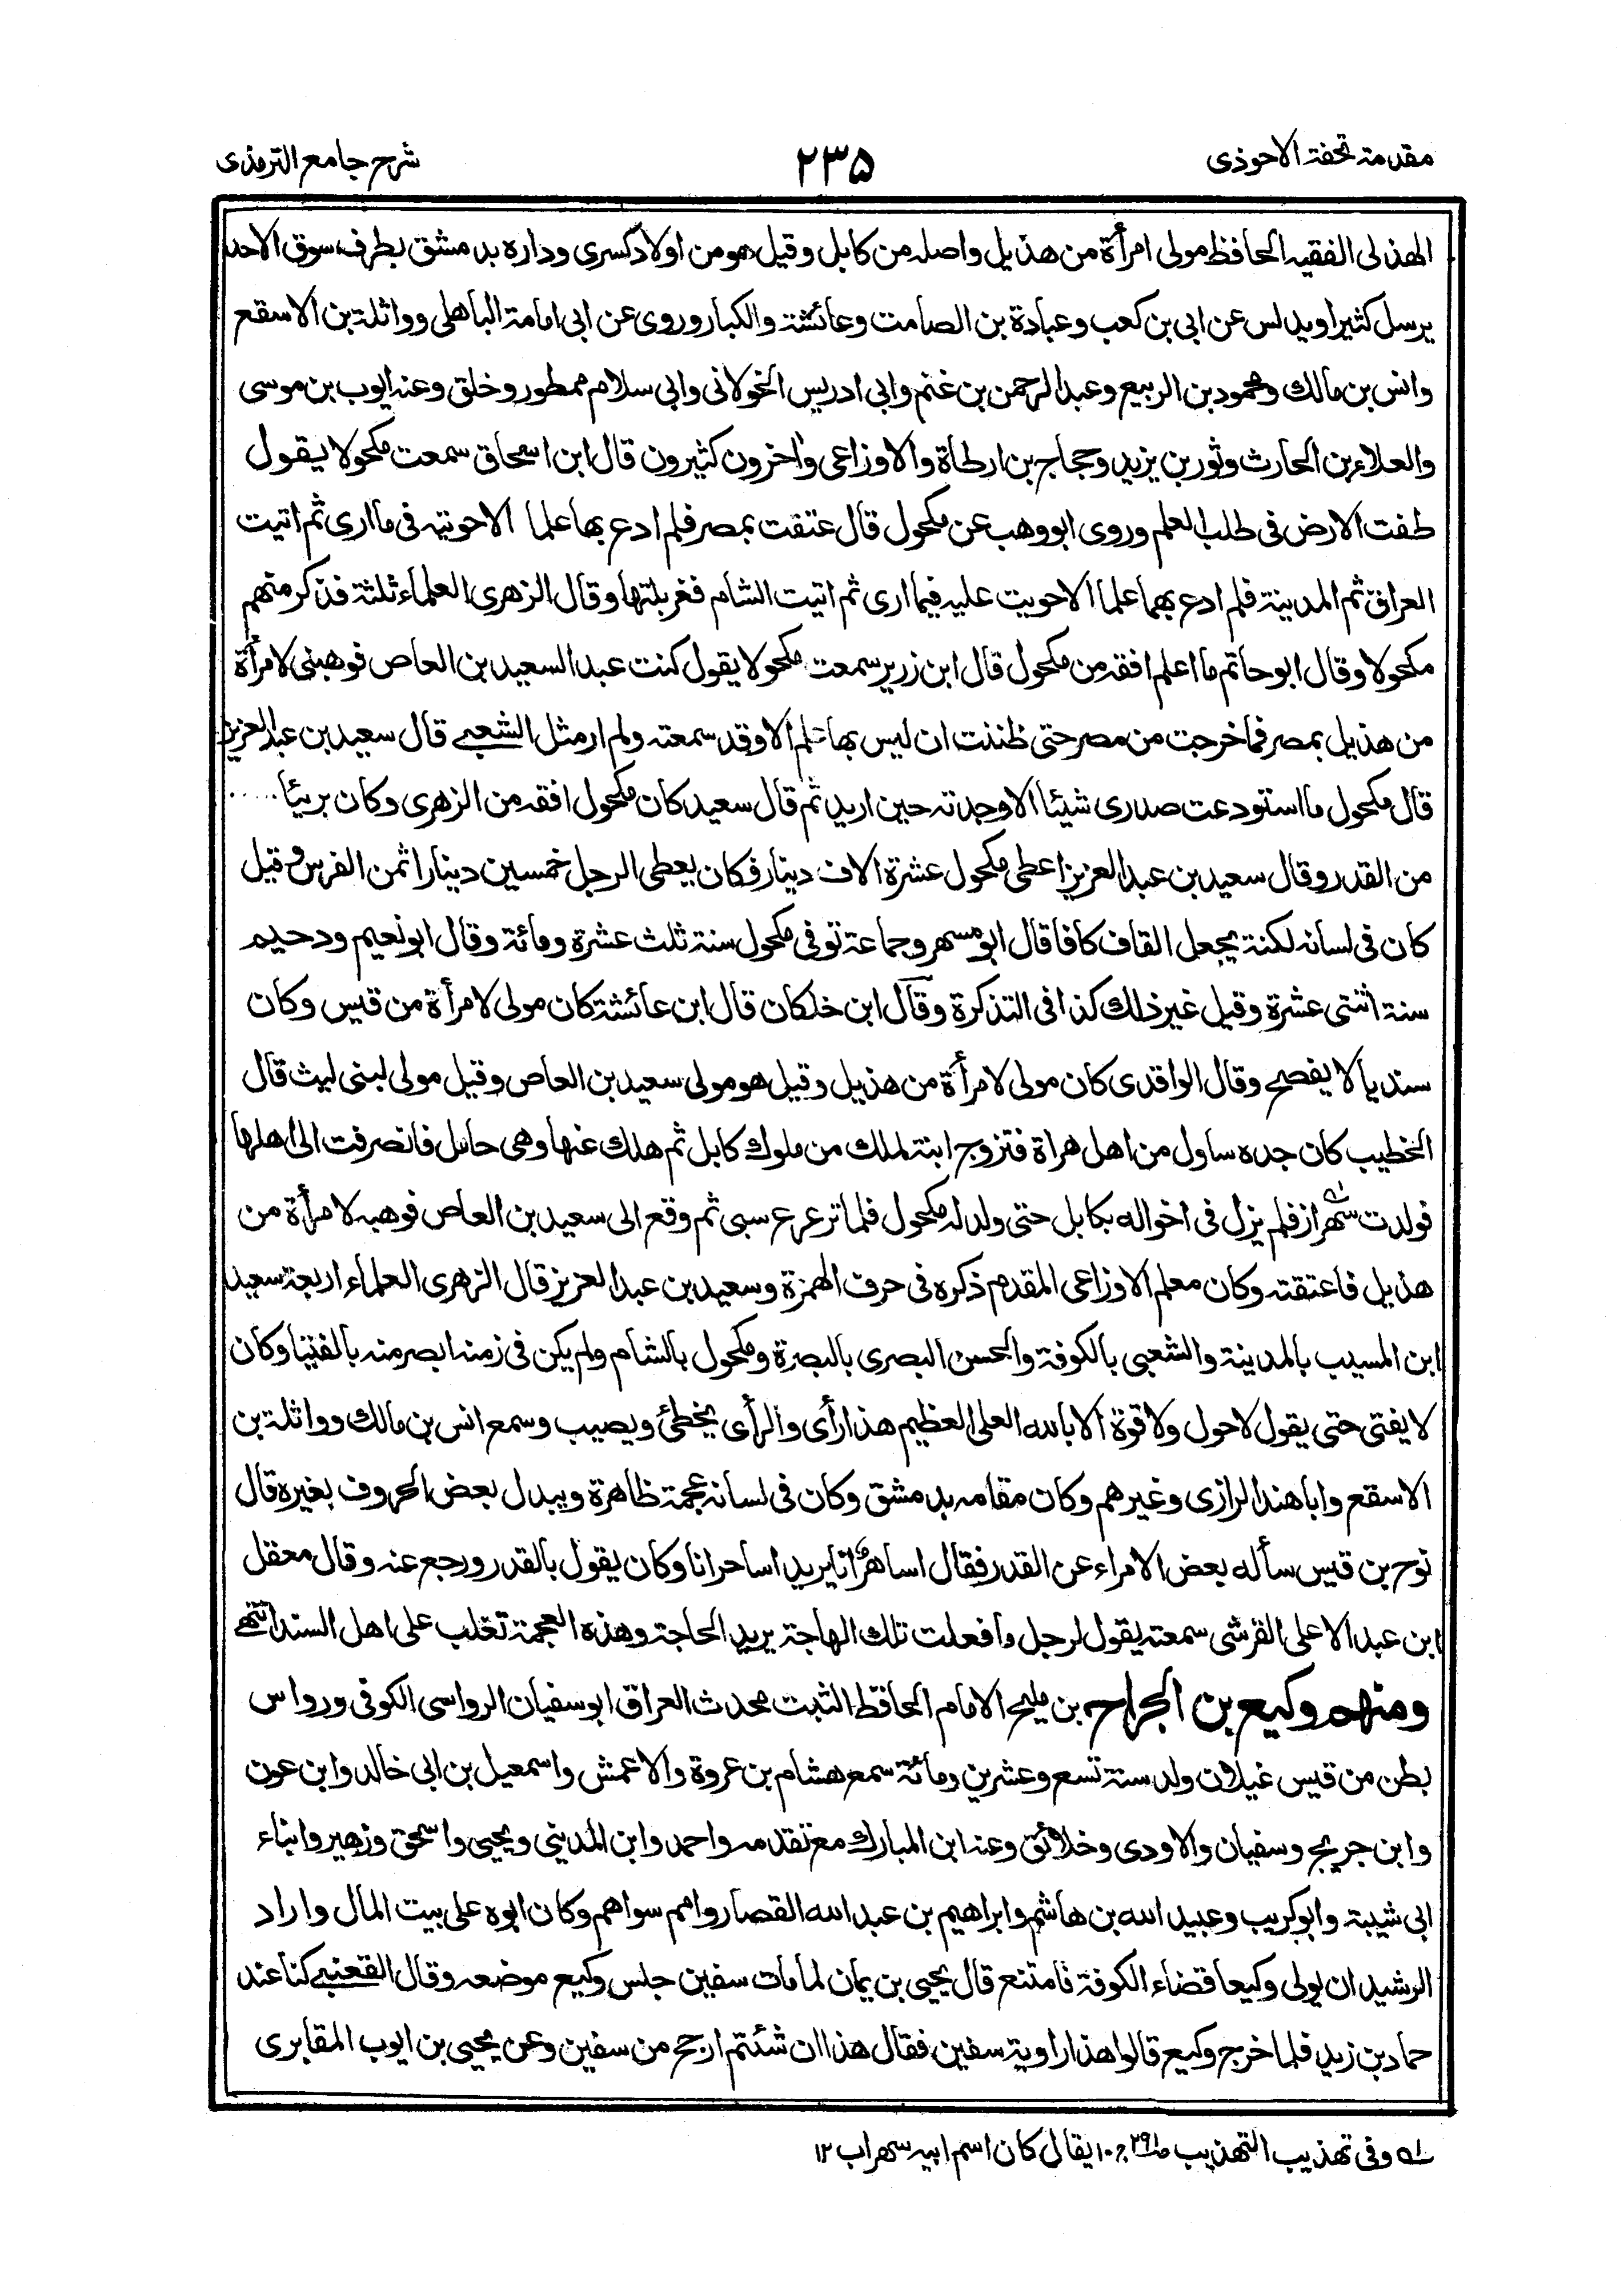 مقدمة تحفة الاحوذى
٢٣٥
شرح جامع الترمذى
الهذلى الفقيه الحافظ مولى امرأة من هذيل واصله من كابل وقيل هو من اولاد كسرى وداره بدمشق بطرف سوق الاحد
يرسل كثيرا ويدلس عن ابى بن كعب وعبادة بن الصامت وعائشة والكبار وروى عن ابى امامة الباهلى وواثلة بن الاسقع
وانس بن مالك ومحمود بن الربيع وعبد الرحمن بن غنم وابى ادريس الخولانى وابى سلام ممطور وخلق وعنه ايوب بن موسى
والعلاء بن الحارث وثور بن يزيد وحجاج بن ارطاة والاوزاعى واخرون كثيرون قال ابن اسحاق سمعت مكحولا يقول
طفت الارض فى طلب العلم وروى ابو وهب عن مكحول قال عتقت بمصر فلم ادع بها علما الا حويته فى ما ارى ثم اتيت
العراق ثم المدينة فلم ادع بهما علما الا حويت عليه فيما ارى ثم اتيت الشام فغربلتها وقال الزهرى العلماء ثلثة فذكر منهم
مكحولا وقال ابو حاتم ما اعلم افقه من مكحول قال ابن زرير سمعت مكحولا يقول كنت عبدا لسعيد بن العاص فوهبنى لامرأة
من هذيل بمصر فما خرجت من مصر حتى ظننت ان ليس بها علم الا وقد سمعته ولم ار مثل الشعبى قال سعيد بن عبد العزيز
قال مكحول ما استودعت صدرى شيئا الا وجدته حين اريد ثم قال سعيد كان مكحول افقه من الزهرى وكان بريئا.....
من القدر وقال سعيد بن عبد العزيز اعطى مكحول عشرة الاف دينار فكان يعطى الرجل خمسين دينارا ثمن الفرس وقيل
كان فى لسانه لكنة يجعل القاف كافا قال ابو مسهر وجماعة توفى مكحول سنة ثلث عشرة ومائة وقال ابو نعيم ودحيم
سنة اثنتى عشرة وقيل غير ذلك كذا فى التذكرة وقال ابن خلكان قال ابن عائشة كان مولى لامرأة من قيس وكان
سنديا لا يفصح وقال الواقدى كان مولى لامرأة من هذيل وقيل هو مولى سعيد بن العاص وقيل مولى لبنى ليث قال
الخطيب كان جده ساول من اهل هراة فتزوج ابنة لملك من ملوك كابل ثم هلك عنها وهى حامل فانصرفت الى اهلها
فولدت شهراز فلم يزل فى اخواله بكابل حتى ولد له مكحول فلما ترعرع سبى ثم وقع الى سعيد بن العاص فوهبه لامرأة من
هذيل فاعتقته وكان معلم الاوزاعى المقدم ذكره فى حرف الهمزة وسعيد بن عبد العزيز قال الزهرى العلماء اربعة سعيد
ابن المسيب بالمدينة والشعبى بالكوفة والحسن البصرى بالبصرة ومكحول بالشام ولم يكن فى زمنه ابصر منه بالفتيا وكان
لا يفتى حتى يقول لا حول ولا قوة الا بالله العلى العظيم هذا رأى والرأى يخطئ ويصيب وسمع انس بن مالك وواثلة بن
الاسقع وابا هند الرازى وغيرهم وكان مقامه بدمشق وكان فى لسانه عجمة ظاهرة ويبدل بعض الحروف بغيره قال
نوح بن قيس سأله بعض الامراء عن القدر فقال اساهر انا يريد اساحر انا وكان يقول بالقدر ورجع عنه وقال معقل
ابن عبد الاعلى القرشى سمعته يقول لرجل ما فعلت تلك الهاجة يريد الحاجة وهذه العجمة تغلب على اهل السند انتهى
ومنهم وكيع بن الجراح بن مليح الامام الحافظ الثبت محدث العراق ابو سفيان الرواسى الكوفى ورواس
بطن من قيس غيلان ولد سنة تسع وعشرين ومائة سمع هشام بن عروة والاعمش واسمعيل بن ابى خالد وابن عون
وابن جريج وسفيان والاودى وخلائق وعنه ابن المبارك مع تقدمه واحمد وابن المدينى ويحيى واسحق وزهير وابناء
ابى شيبة وابو كريب وعبيد الله بن هاشم وابراهيم بن عبد الله القصار وامم سواهم وكان ابوه على بيت المال واراد
الرشيد ان يولى وكيعا قضاء الكوفة فامتنع قال يحيى بن يمان لما مات سفين جلس وكيع موضعه وقال القعنبى كنا عند
حماد بن زيد فلما خرج وكيع قالوا هذا راوية سفين فقال هذا ان شئتم ارجح من سفين وعن يحيى بن ايوب المقابرى
له وفى تهذيب التهذيب ص٢٩١ ج١٠ يقال كان اسم ابيه سهراب ١٢